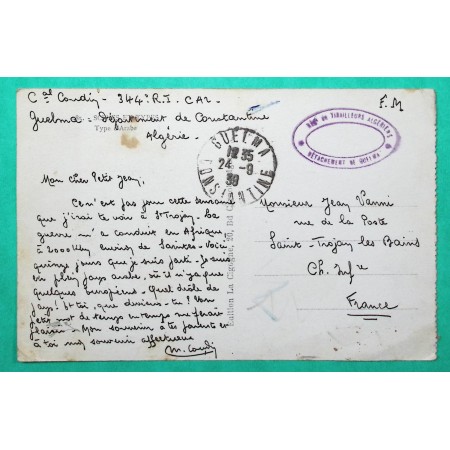 Cal Coudin - 344e R.I. CA2
Guelma - Département de Constantine
Algérie -
F.M
Type d'Arabe
GUELMA
12 35
24 - 9
39
CONSTANTINE
Régt de TIRAILLEURS ALGÉRIENS
DÉTACHEMENT DE GUELMA
Edition La Cigogne, 20, Bd
Mon cher Petit Jean,
Ce n'est pas jour cette semaine
que j'irai te voir à St Trojan. La
guerre m'a conduit en Afrique
à 2000 Km environ de Saintes - Voici
quinze jours que je suis parti - Je suis
en plein pays arabe, où il n'y a que
quelques Européens - Quel drôle de
pays. Et toi, que deviens-tu ? Un
mot de temps en temps me ferait
plaisir - Mon souvenir à tes parents et
à toi mon souvenir affectueux
M. Coudin
Monsieur Jean Vanni
rue de la Poste
Saint-Trojan les Bains
Ch. Infre
France